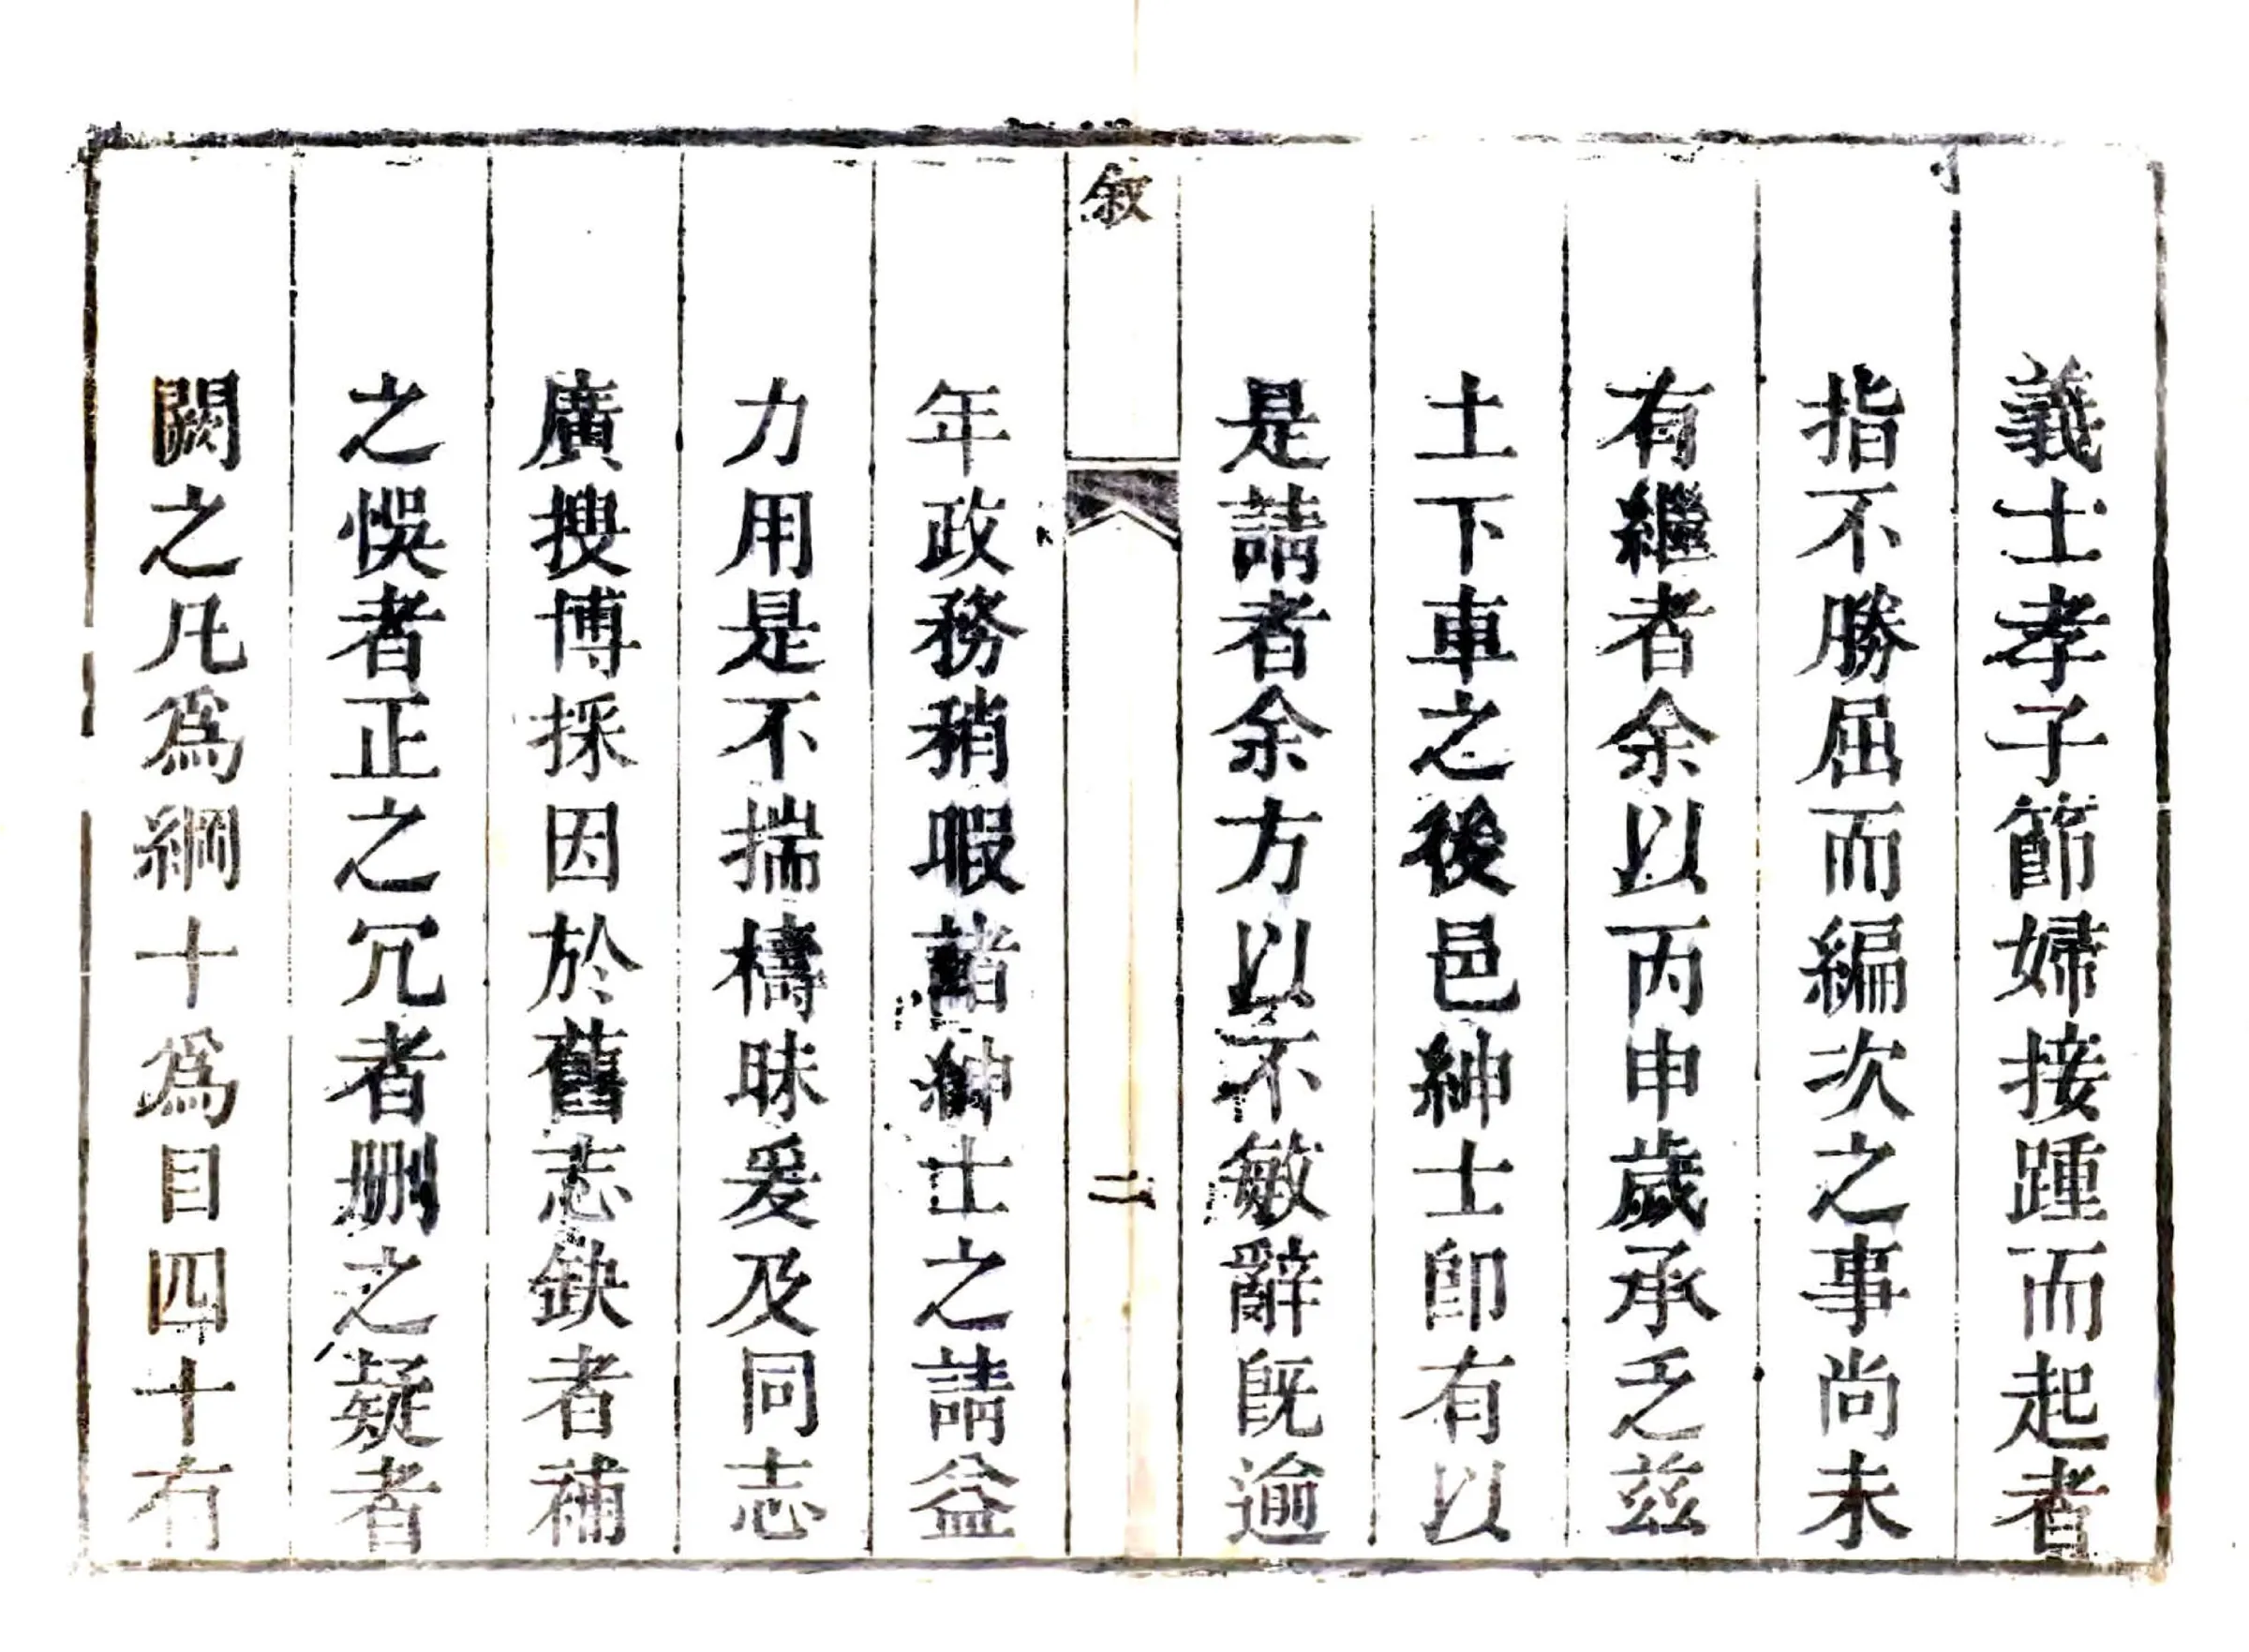 義士孝子節婦接踵而起者
指不勝屈而編次之事尚未
有繼者余以丙申歲承乏兹
土下車之後邑紳士即有以
是請者余方以不敏辭既逾
敘
二
年政務稍暇諸紳士之請益
力用是不揣檮昧爰及同志
廣搜博採因於舊志缺者補
之悞者正之冗者刪之疑者
闕之凡為綱十為目四十有